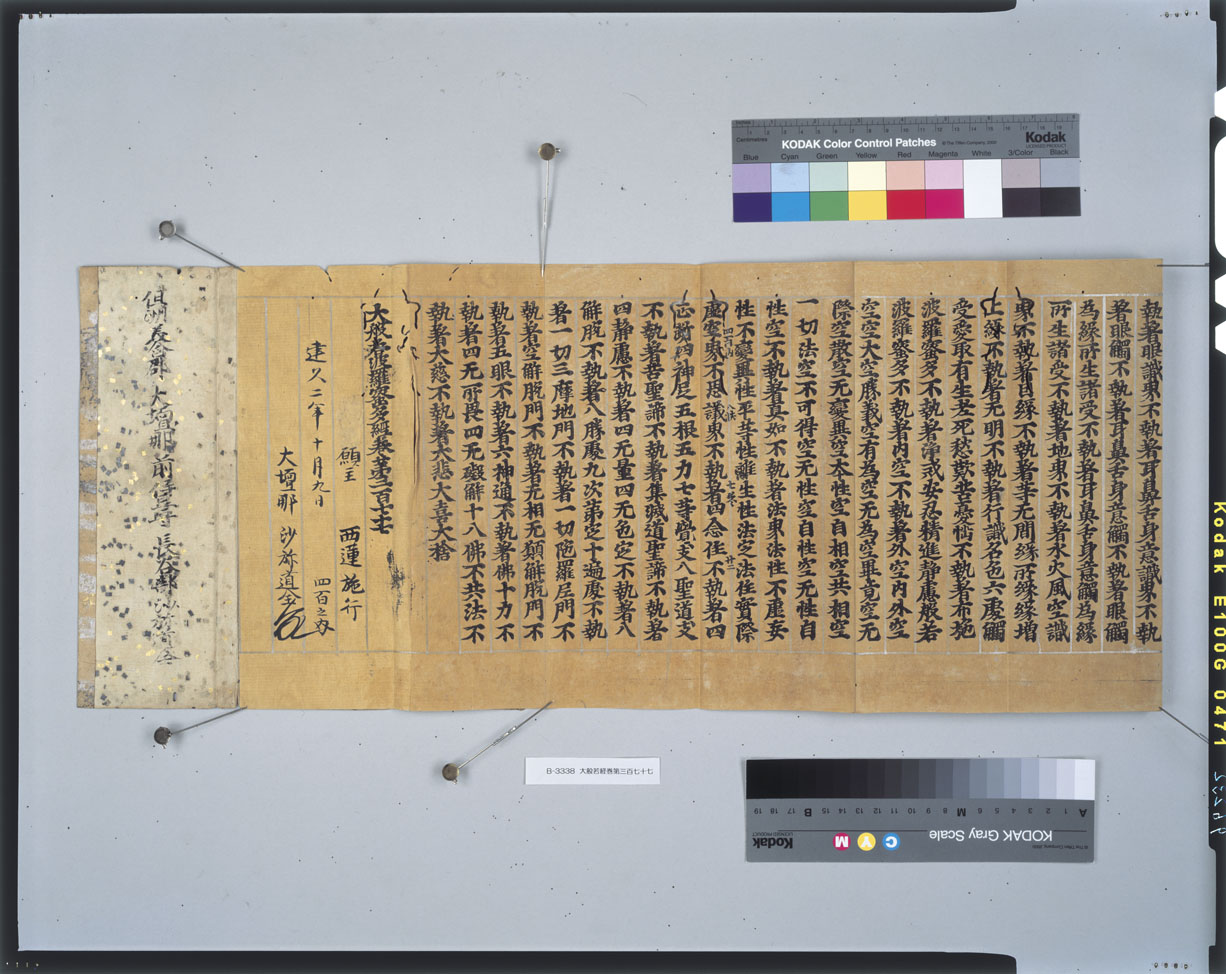 執著眼識界不執著耳鼻舌身意識界不執
著眼觸不執著耳鼻舌身意觸不執著眼觸
為緣所生諸受不執著耳鼻舌身意觸為緣
所生諸受不執著地界不執著水火風空識
界不執著因緣不執著等无間緣所緣緣增
上緣不執著无明不執著行識名色六處觸
受愛取有生老死愁歎苦憂惱不執著布施
波羅蜜多不執著淨戒安忍精進靜慮般若
波羅蜜多不執著內空不執著外空內外空
空空大空勝義空有為空无為空畢竟空无
際空散空无變異空本性空自相空共相空
一切法空不可得空无性空自性空无性自
性空不執著真如不執著法界法性不虛妄
性不變異性平等性離生性法定法住實際
虛空界不思議界不執著四念住不執著四
正斷四神足五根五力七等覺支八聖道支
不執著苦聖諦不執著集滅道聖諦不執著
四靜慮不執著四无量四无色定不執著八
解脫不執著八勝處九次第定十遍處不執
著一切三摩地門不執著一切陁羅尼門不
執著空解脫門不執著无相无願解脫門不
執著五眼不執著六神通不執著佛十力不
執著四无所畏四无礙解十八佛不共法不
執著大慈不執著大悲大喜大捨
大般若波羅蜜多經卷第三百七十七
願主 西運 施行
建久二年十月九日 四百之內
大壇那 沙弥道全
大壇那
KODAK Color Control Patches
© The Tiffen Company, 2000
Kodak
LICENSED PRODUCT
Centimetres
Blue Cyan Green Yellow Red Magenta White 3/Color Black
B-3338 大般若経巻第三百七十七
A 1 2 3 4 5 6 M 8 9 10 11 12 13 14 15 B 17 18 19
KODAK Gray Scale
C Y M
Kodak
LICENSED PRODUCT
Kodak E100G 0471